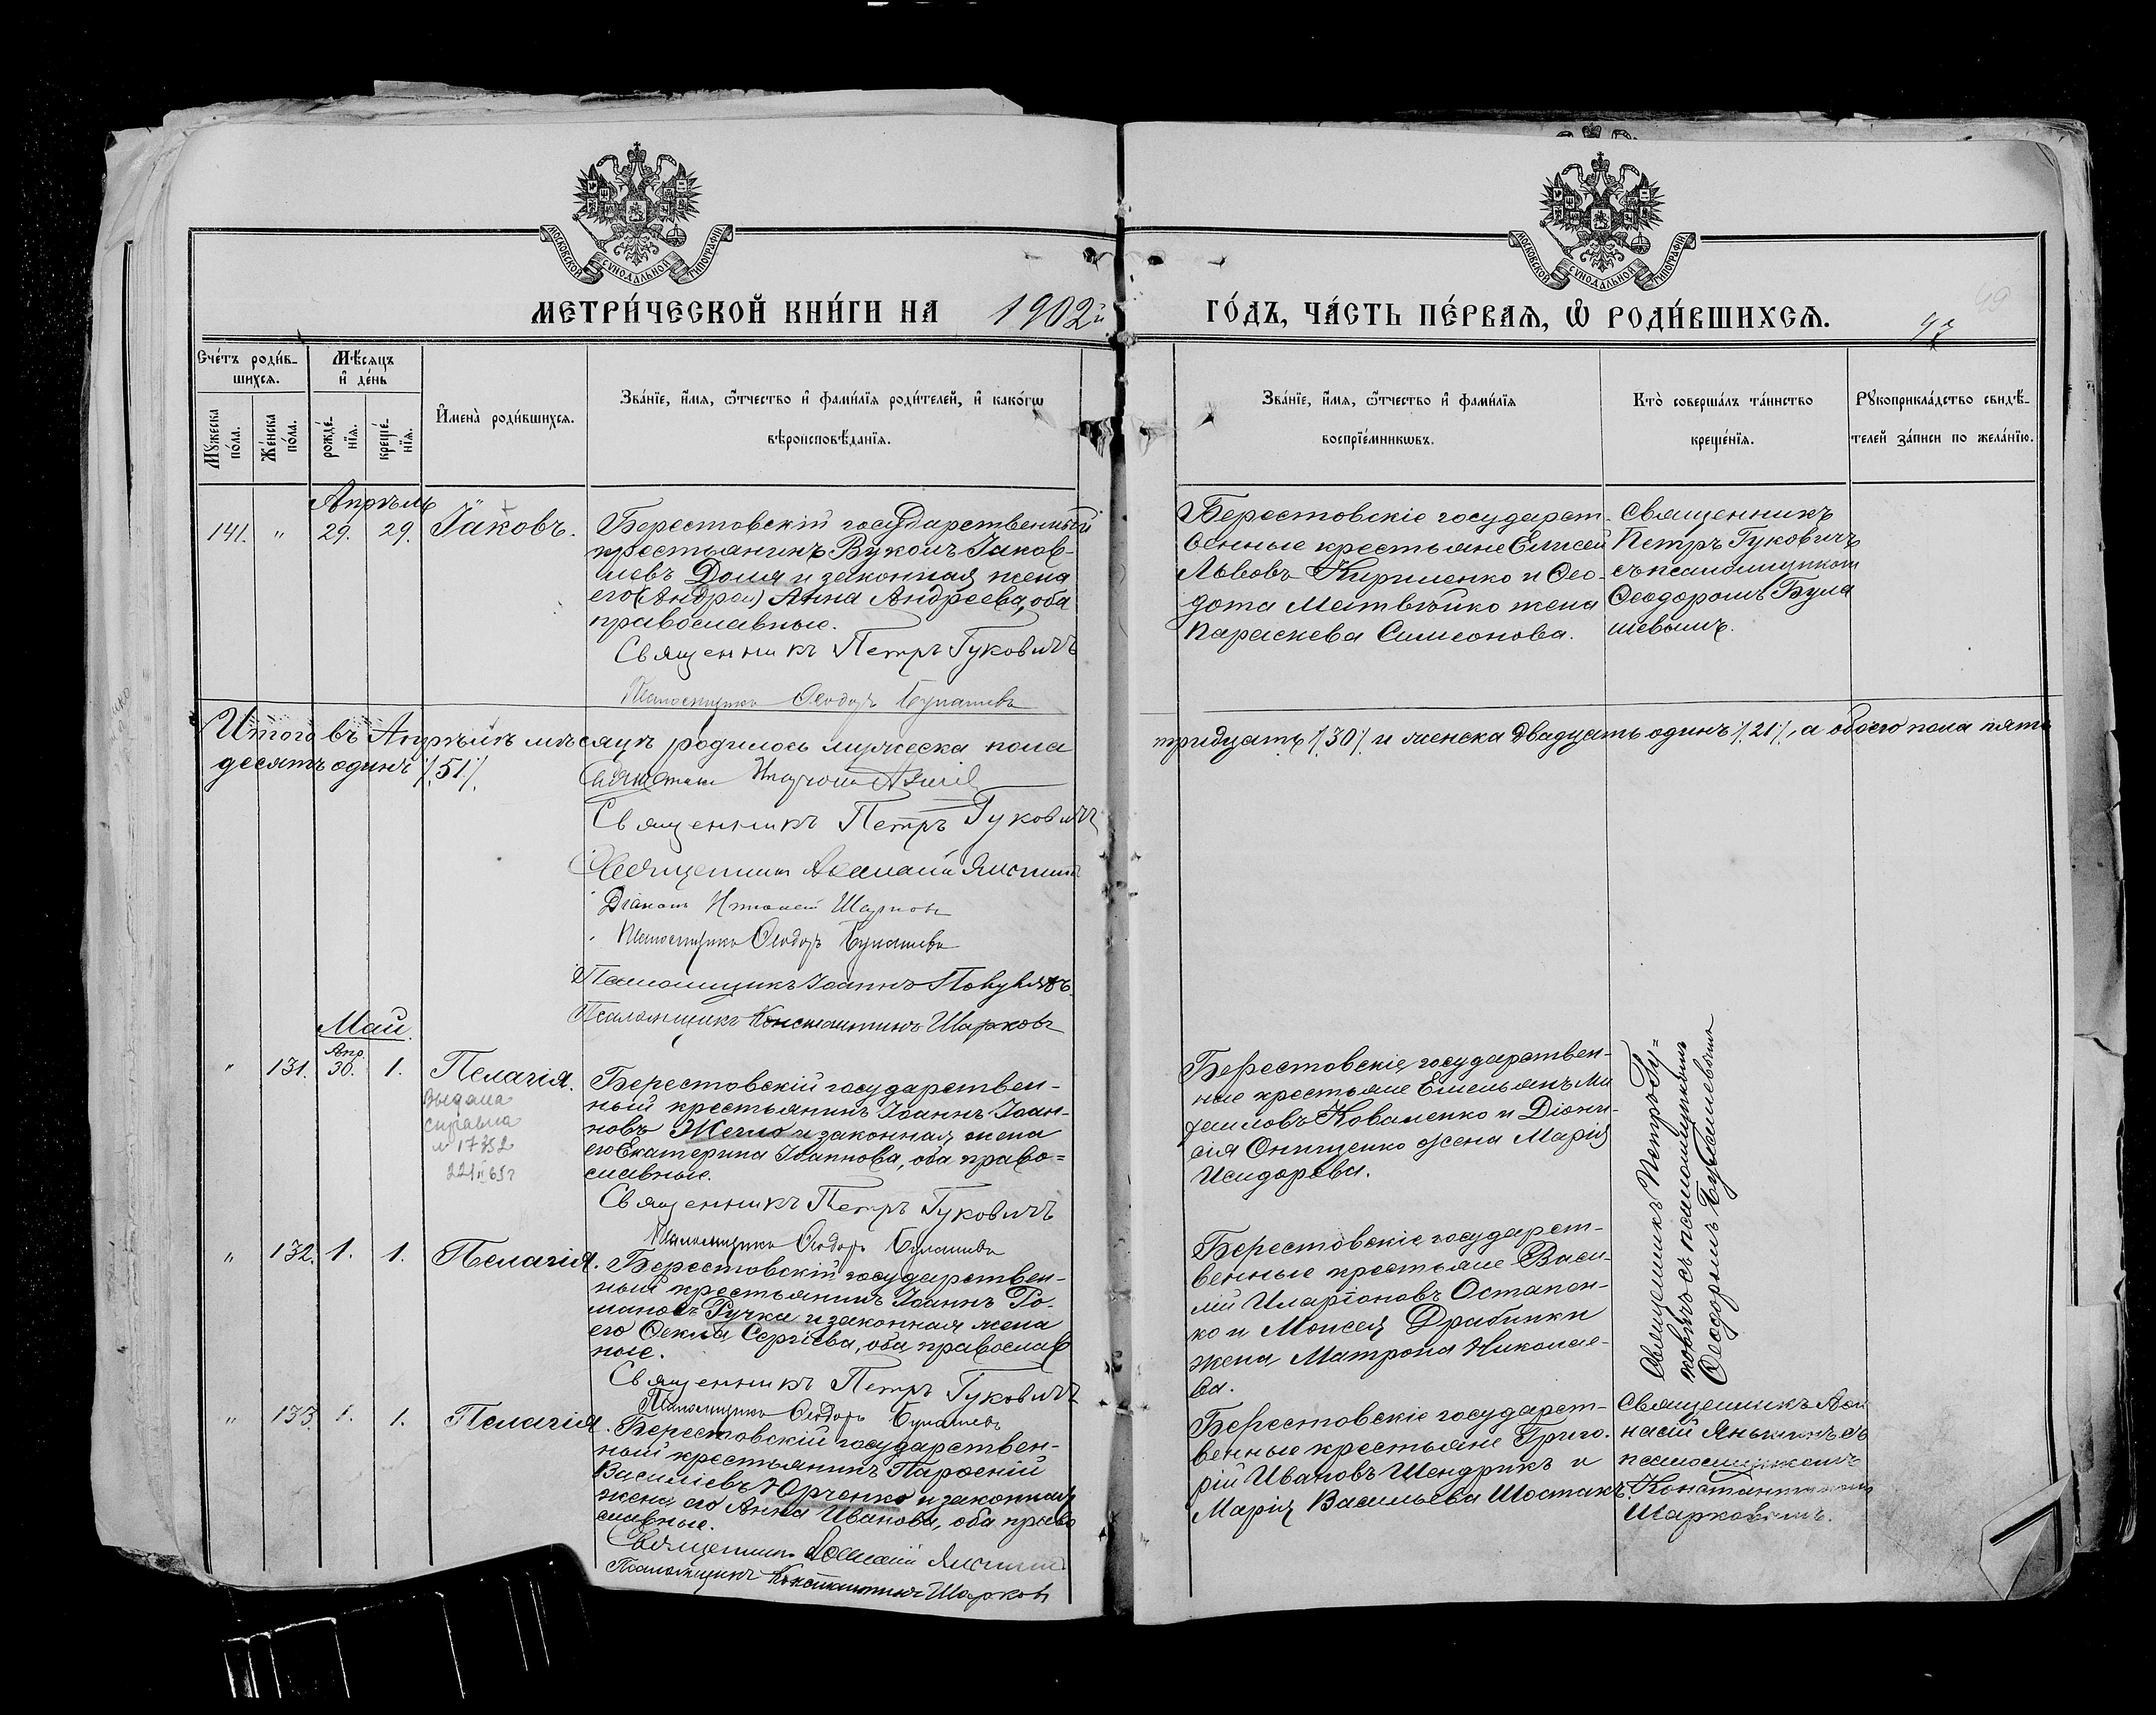 МОСКОВСКОЙ СѴНОДАЛЬНОЙ ТИПОГРАФІИ
МОСКОВСКОЙ СѴНОДАЛЬНОЙ ТИПОГРАФІИ
МЕТРИ́ЧЕСКОЙ КНИ́ГИ НА 1902й ГО́ДЪ, ЧА́СТЬ ПЕ́РВАЯ, Ѡ РОДИ́ВШИХСЯ.
49
47
Сче́тъ роди́в-
шихся.
Мѣ́сяцъ
и҆ де́нь
Му́жеска
по́ла.
Же́нска
по́ла.
рожде́-
нїя.
креще́-
нїя.
И҆мена̀ роди́вшихся.
Зва́нїе, и҆́мя, ѻ҆́тчество и҆ фами́лїя роди́телей, и҆ како́гѡ
вѣроисповѣ́данїя.
Зва́нїе, и҆́мя, ѻ҆́тчество и҆ фами́лїя
воспрїе́мникѡвъ.
Кто̀ соверша́лъ та́инство
креще́нїя.
Рꙋкоприкла́дство свидѣ́-
телей за́писи по жела́нїю.
Апрѣль
141. " 29. 29. Іаковъ.
Берестовскій государственный
крестьянинъ Вуколъ Іаков-
левъ Доля и законная жена
его (Андрея) Анна Андреева, оба
православные.
Священникъ Петръ Гуковичъ
Псаломщикъ Ѳеодоръ Булашевъ
Берестовскіе государст-
венные крестьяне Елисей
Львовъ Кириленко и Ѳео-
дота Матвѣйко жена
Параскева Симеонова.
Священникъ
Петръ Гуковичъ
съ псаломщикомъ
Ѳеодоромъ Була
шевымъ.
Итого въ Апрѣлѣ мѣсяцѣ родилось мужеска пола тридцать /30/ и женска двадцать одинъ /21/, а обоего пола пять
десятъ одинъ /51/.
Священникъ Петръ Гуковичъ
Священникъ Аѳанасій
Діаконъ
Псаломщикъ Ѳеодоръ Булашевъ
Псаломщикъ Іоаннъ
Псаломщикъ Константинъ Шарковъ
Май.
" 131. Апр. 30. 1. Пелагія.
Выдана
справка
№ 1752
Берестовскій государствен-
ный крестьянинъ Іоаннъ Іоан-
новъ Жегло и законная жена
его Екатерина Іоаннова, оба право-
славные.
Священникъ Петръ Гуковичъ
Псаломщикъ Ѳеодоръ Булашевъ
Берестовскіе государствен-
ные крестьяне Емельянъ Ми
хаиловъ Коваленко и Діони-
сія Онищенко жена Марія
Исидорова.
Священникъ Петръ Гу-
ковичъ съ псаломщикомъ
Ѳеодоромъ Булашевымъ
" 132. 1. 1. Пелагія.
Берестовскій государствен-
ный крестьянинъ Іоаннъ Ро-
мановъ Ручка и законная жена
его Ѳекла Сергіева, оба православ
ные.
Священникъ Петръ Гуковичъ
Псаломщикъ Ѳеодоръ Булашевъ
Берестовскіе государст-
венные крестьяне Васи-
лій Иларіоновъ Остапен-
ко и Моисея Драбинки
жена Матрона Николае-
ва.
" 133. 1. 1. Пелагія.
Берестовскій государствен-
ный крестьянинъ Парѳеній
Василіевъ Юрченко и законная
жена его Анна Иванова, оба право
славные.
Священникъ Аѳанасій
Псаломщикъ Константинъ Шарковъ
Берестовскіе государст-
венные крестьяне Григо-
рій Ивановъ Шендрикъ и
Марія Васильева Шостакъ.
Священникъ Аѳа
насій съ
псаломщикомъ
Константиномъ
Шарковымъ.